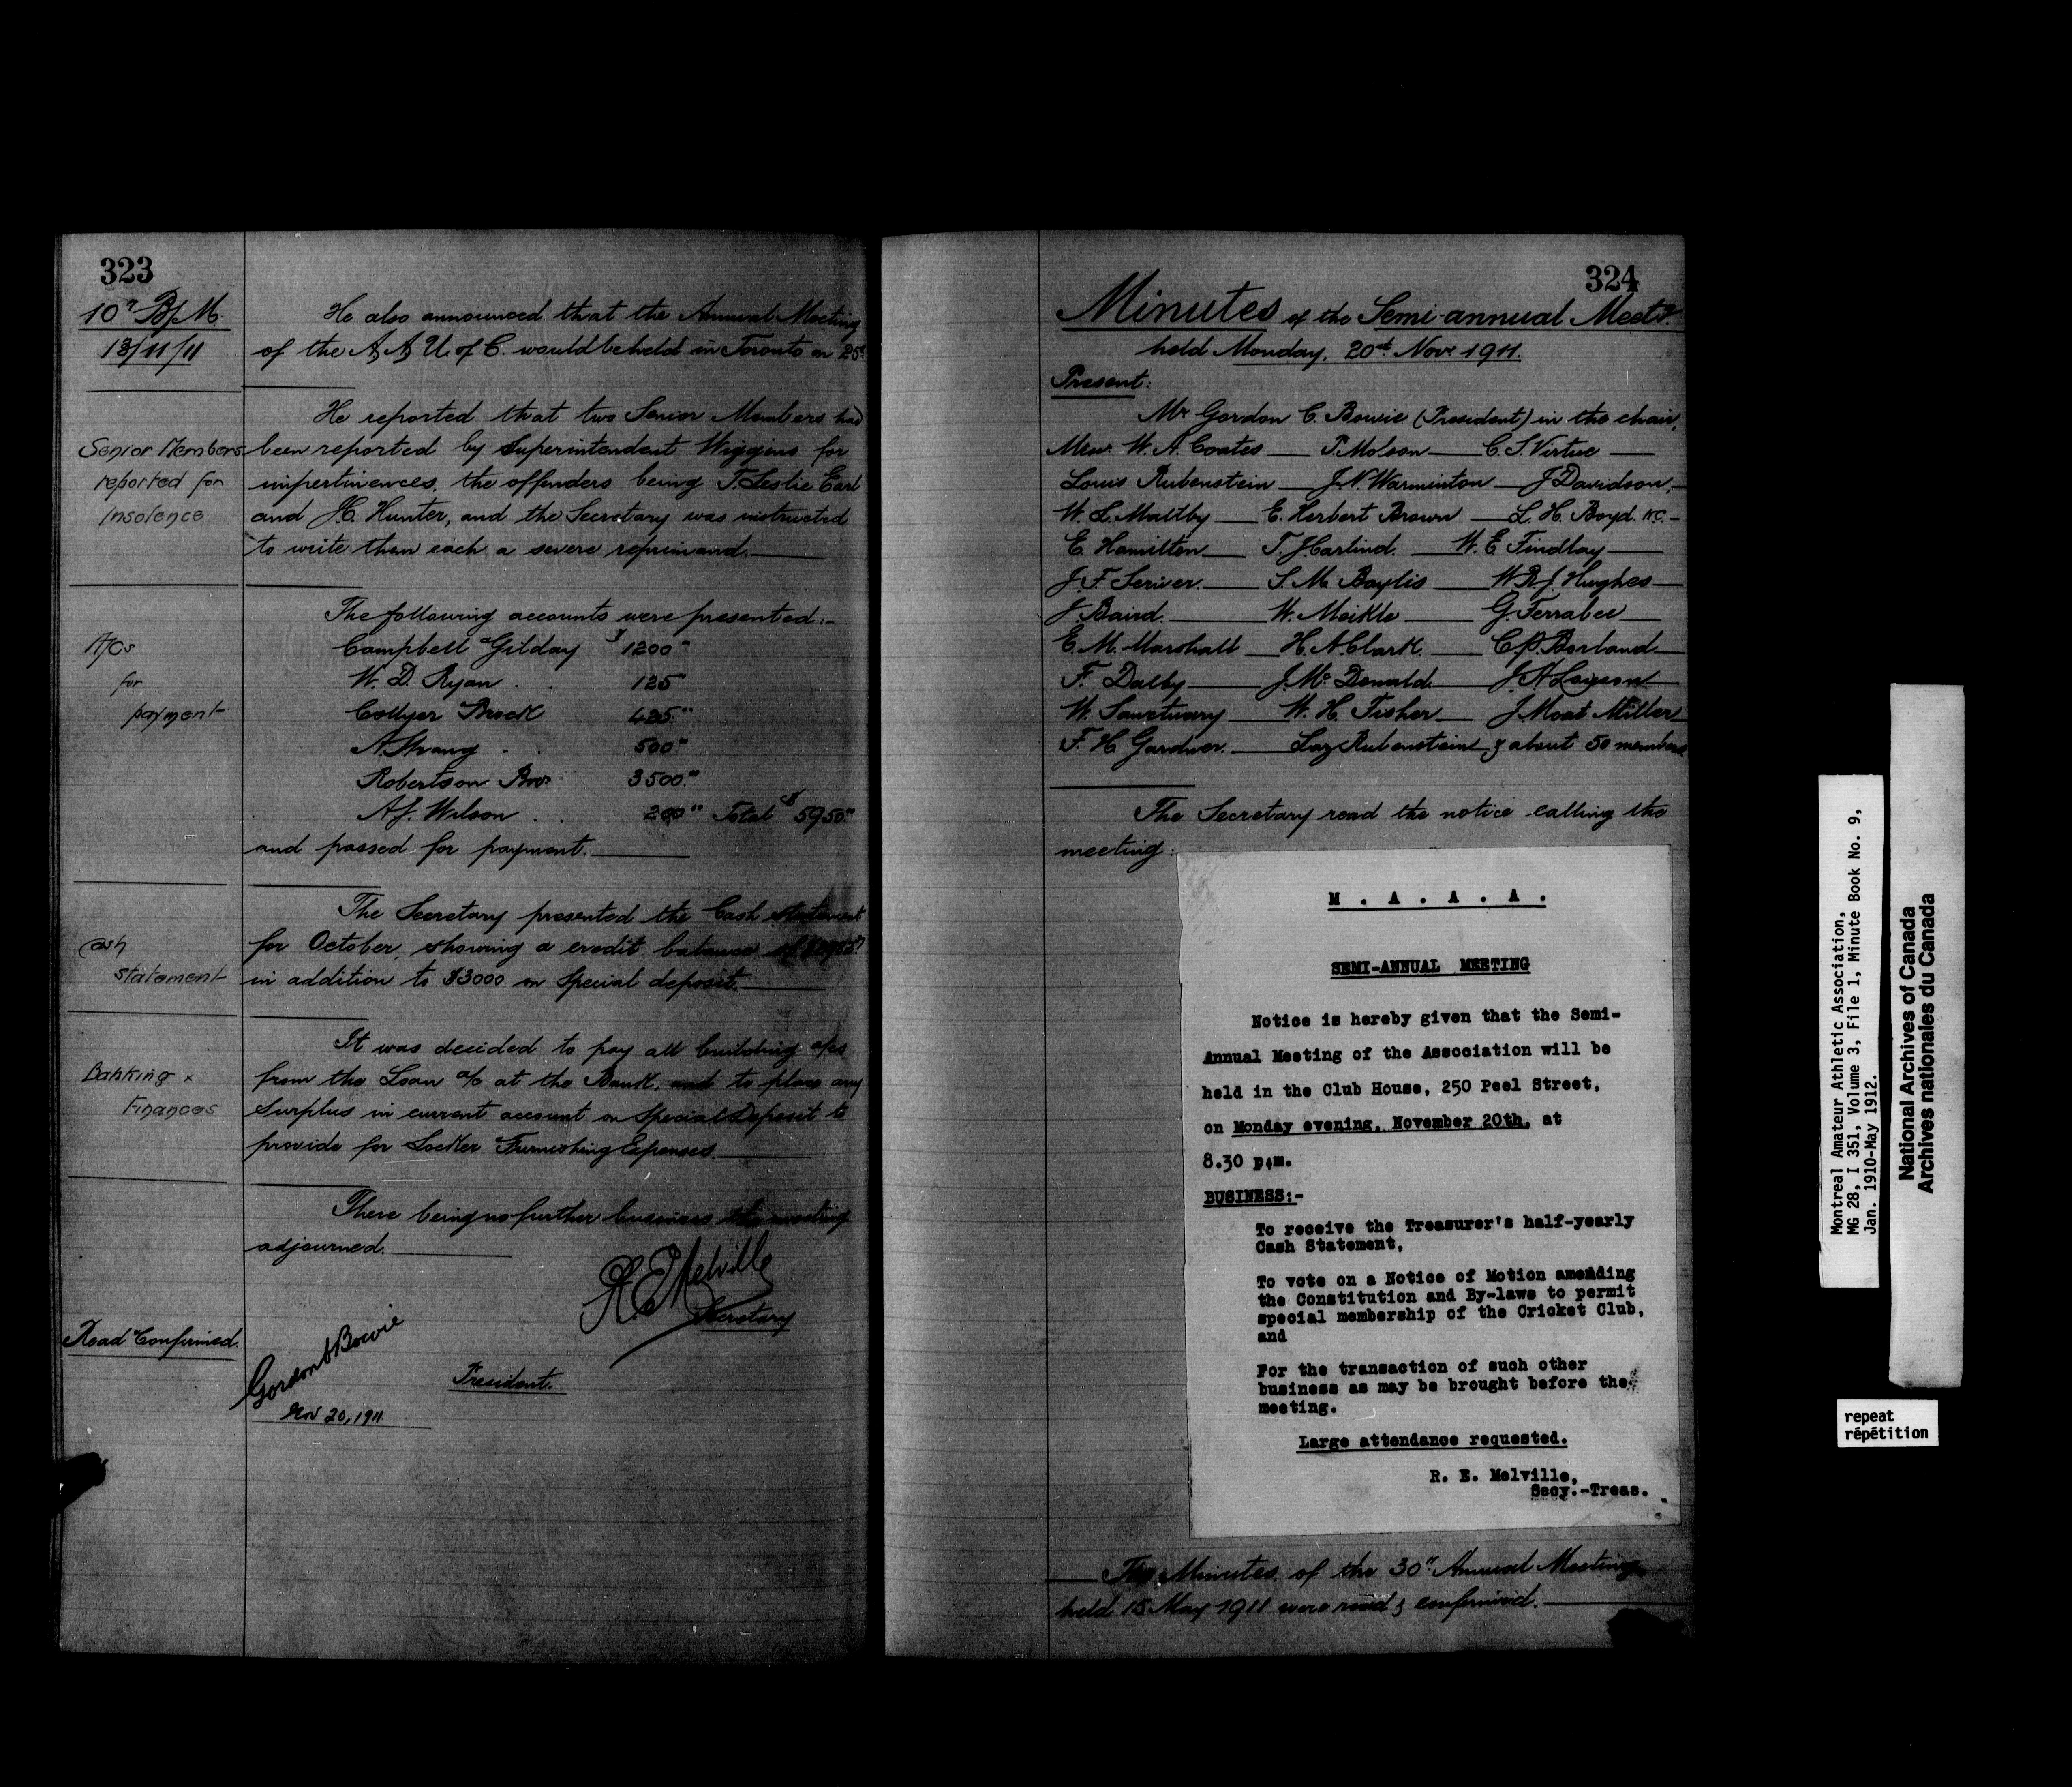 323
10" B/M.
13/11/11
He also announced that the Annual Meeting
of the A A U. of C. would be held in Toronto on 25th
He reported that two Senior Members had
Senior Members
reported for
Insolence
been reported by Superintendent Wiggins for
impertinences, the offenders being T. Leslie Earl
and J.C. Hunter, and the Secretary was instructed
to write them each a severe reprimand.
The following accounts were presented:-
A/Cs
for
payment
Campbell & Gilday $ 1200"
W. D. Ryan . . 125"
Collyer Brock 425"
A. Strang . . 500"
Robertson Bros. 3500"
A.J. Wilson . . 200" Total $ 5950"
and passed for payment.
The Secretary presented the Cash statement
Cash
statement
for October, showing a credit balance of
in addition to $3000 on Special deposit.
It was decided to pay all building a/cs
Banking &
Finances
from the Loan a/c at the Bank, and to place any
Surplus in current account on Special Deposit to
provide for Locker Furnishing Expenses.
There being no further business the meeting
adjourned.
R.E. Melville
Secretary
Read & Confirmed.
Gordon C Bowie
President.
Nov 20, 1911
324
Minutes of the Semi-annual Meetg.
held Monday, 20th Novr 1911.
Present:
Mr Gordon C. Bowie (President) in the chair,
Messrs. W. A. Coates — P. Molson — C. S. Virtue —
Louis Rubenstein — J. N. Warminton — J Davidson, —
W. L. Maltby — E. Herbert Brown — L. H. Boyd. KC. —
E. Hamilton — T. J. Carlind. — W. E. Findlay —
J. F. Scriver. — S. M. Baylis — W.R.J. Hughes —
J Baird. — W. Meikle — G. Ferrabee —
E. M. Marshall — H. A. Clark. — C.P. Borland —
F. Dalby — J. McDonald — J. A.
W. Sanctuary — W. H. Fisher — J. Moat Miller
F. H. Gardner. — Laz Rubenstein, & about 50 members
The Secretary read the notice calling the
meeting:
M . A . A . A .
SEMI-ANNUAL MEETING
Notice is hereby given that the Semi-
Annual Meeting of the Association will be
held in the Club House, 250 Peel Street,
on Monday evening, November 20th, at
8.30 p.m.
BUSINESS:-
To receive the Treasurer's half-yearly
Cash Statement,
To vote on a Notice of Motion amending
the Constitution and By-laws to permit
special membership of the Cricket Club,
and
For the transaction of such other
business as may be brought before the
meeting.
Large attendance requested.
R. E. Melville,
Secy.-Treas.
The Minutes of the 30" Annual Meeting
held 15 May 1911 were read & confirmed.
Montreal Amateur Athletic Association,
MG 28, I 351, Volume 3, File 1, Minute Book No. 9,
Jan. 1910-May 1912.
National Archives of Canada
Archives nationales du Canada
repeat
répétition